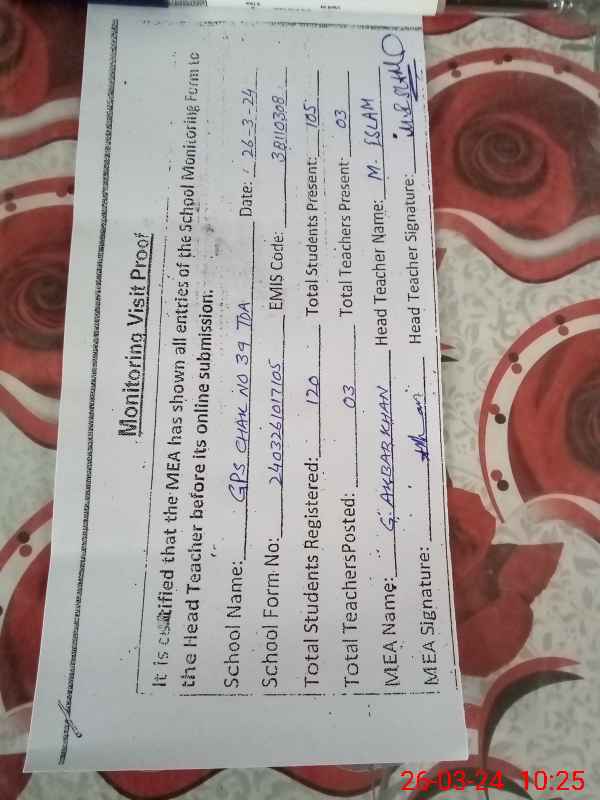 Monitoring Visit Proof
It is certified that the MEA has shown all entries of the School Monitoring Form to
the Head Teacher before its online submission.
School Name: GPS CHAK NO 39 TDA Date: 26-3-24
School Form No: 2403261017105 EMIS Code: 38110308
Total Students Registered: 120 Total Students Present: 105
Total TeachersPosted: 03 Total Teachers Present: 03
MEA Name: G. AKBAR KHAN Head Teacher Name: M. ISLAM
MEA Signature: Head Teacher Signature:
26-03-24 10:25